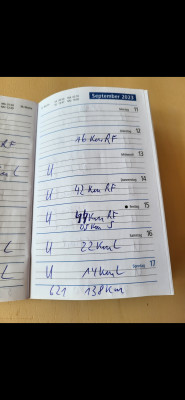 September 2023
Montag 11
Dienstag 12
46 Km RF
Mittwoch 13
U
Donnerstag 14
U 42 Km RF
Freitag 15
U 44 Km RF
05 Km S
Samstag 16
U 22 Km L
Sonntag 17
U 14 Km L
621 138 Km
RF
L
L
L